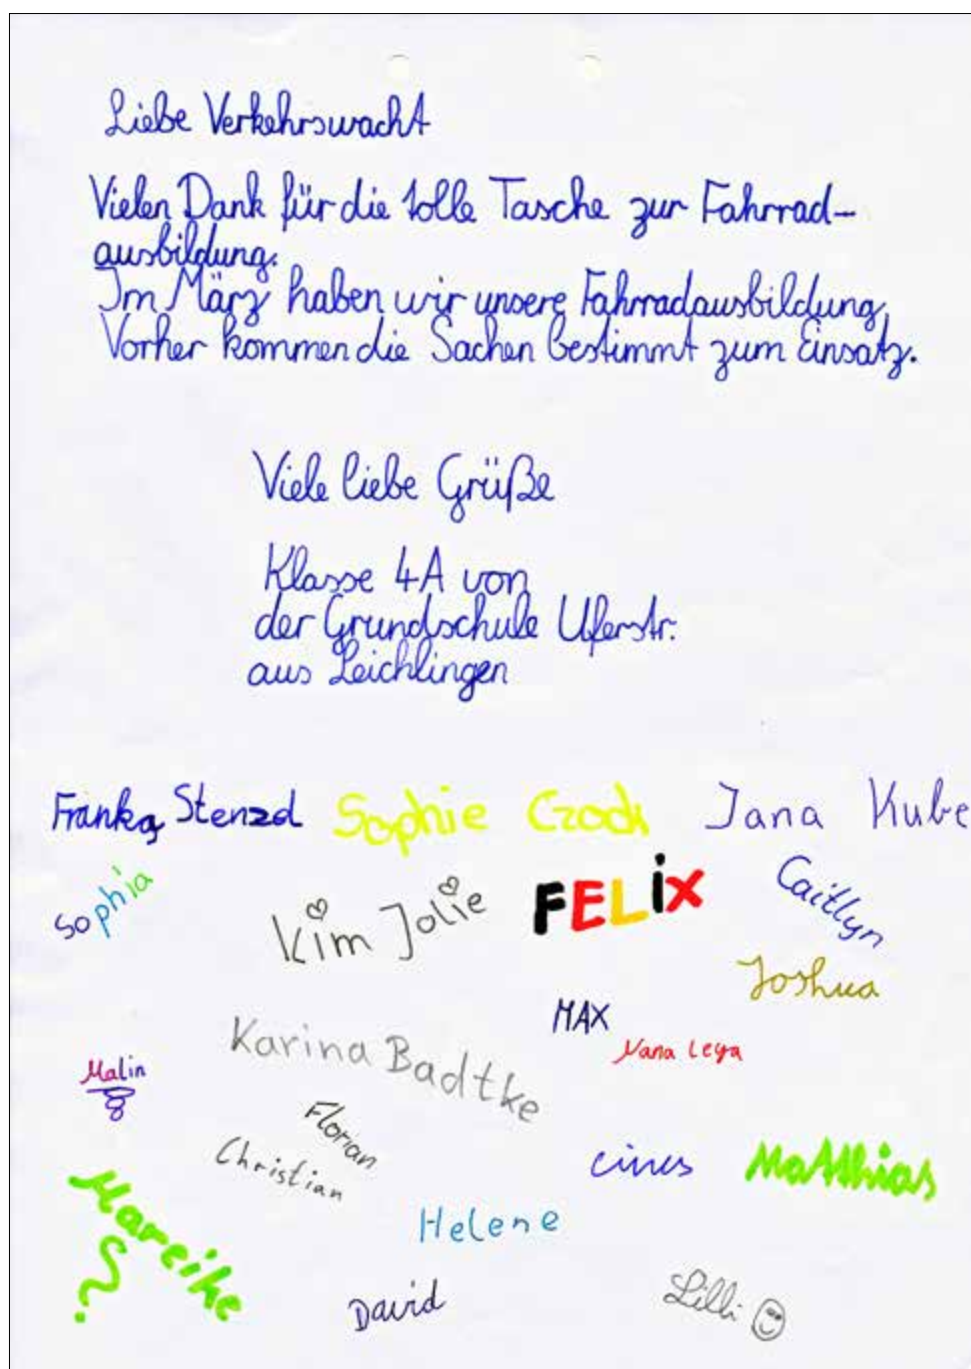 Liebe Verkehrswacht
Vielen Dank für die tolle Tasche zur Fahrrad-
ausbildung.
Im März haben wir unsere Fahrradausbildung,
Vorher kommen die Sachen bestimmt zum Einsatz.
Viele liebe Grüße
Klasse 4A von
der Grundschule Uferstr.
aus Leichlingen
Franka Sophie Jana Kube
Sophia Kim Jolie FELIX Caitlyn
Joshua
MAX
Karina Badtke
Nana Leya
Malin
Florian
Christian
Matthias
Mareike
Helene
David
Lilli